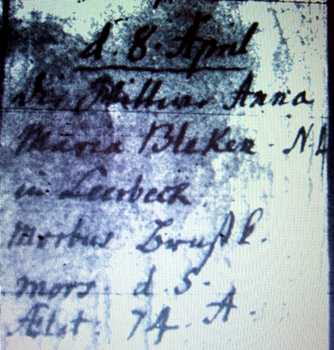 d. 8. April
die Wittwe Anna
Maria Bleken N.
in Leerbeck.
Morbus Brustk.
mors. d 5.
Ætat. 74. A.